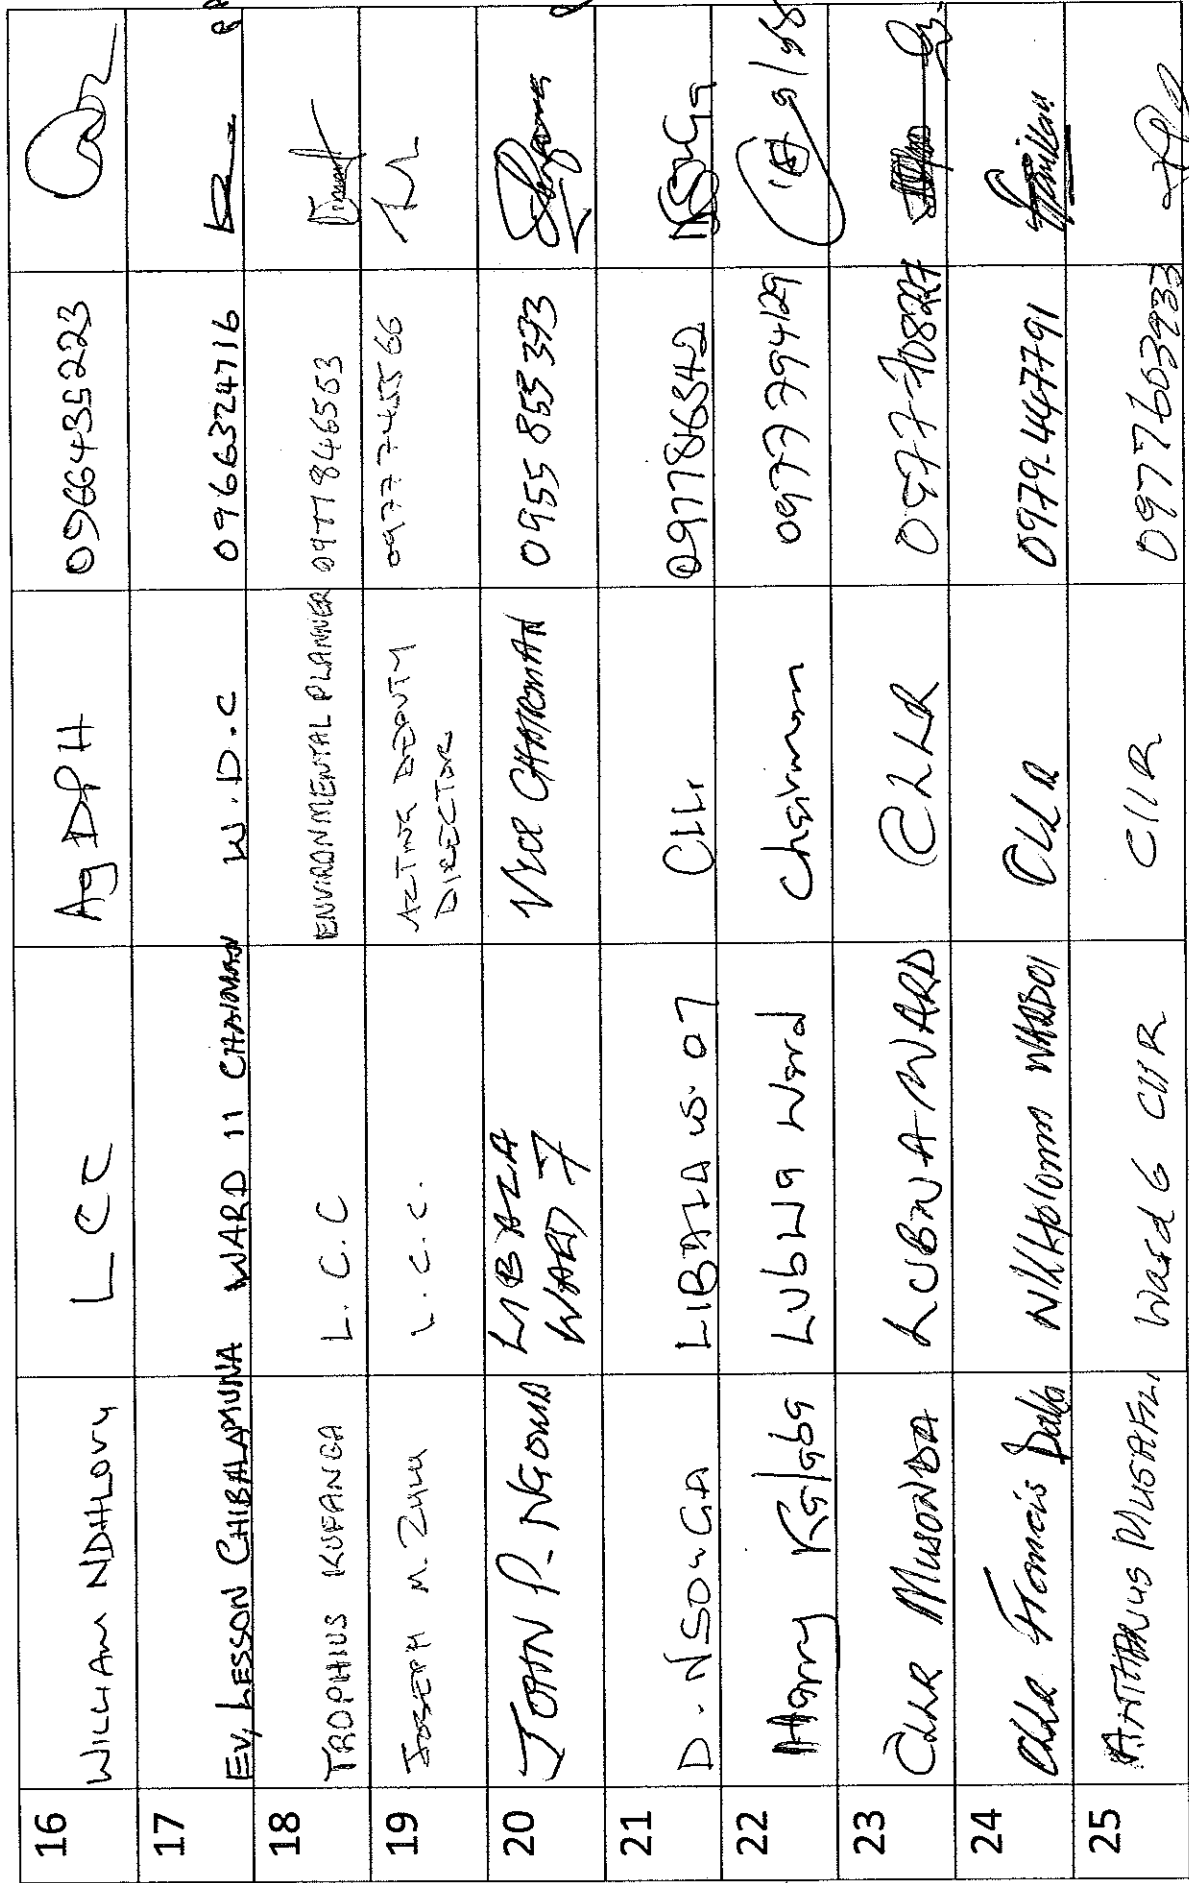 16 WILLIAM NDHLOVU LCC Ag DPH 0966435223
17 EV, LESSON CHIBALAMUNA WARD 11 CHAIMAN W.D.C 0966324716
18 TROPHIUS KUFANGA L.C.C ENVIRONMENTAL PLANNER 0977846563
19 JOSEPH M. ZULU L.C.C. ACTING DEPUTY DIRECTOR 0977745566
20 JOHN P. NGOMA LIBALA WARD 7 VICE CHAIRMAN 0955 855 373
21 D. NSONGA LIBALA W. 07 CLLr 097786542
22 Harry Kalaba Lubwa Ward Chairman 0977794129
23 CLLR MUSONDA LUBWA WARD CLLR
24 CLLR Francis WARD 01 CLLR 0979-447791
25 Ward 6 CllR CllR 0977603933